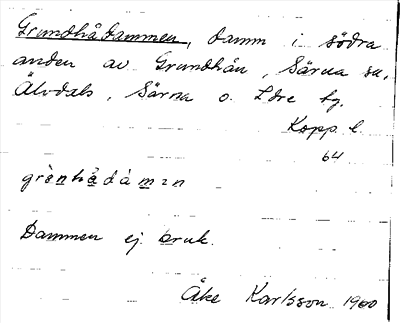 Grundhådammen, damm i södra
änden av Grundhån, Särna sn,
Älvdals, Särna o. Idre tg.
Kopp. l.
64
Dammen ej bruk.
Åke Karlsson 1960